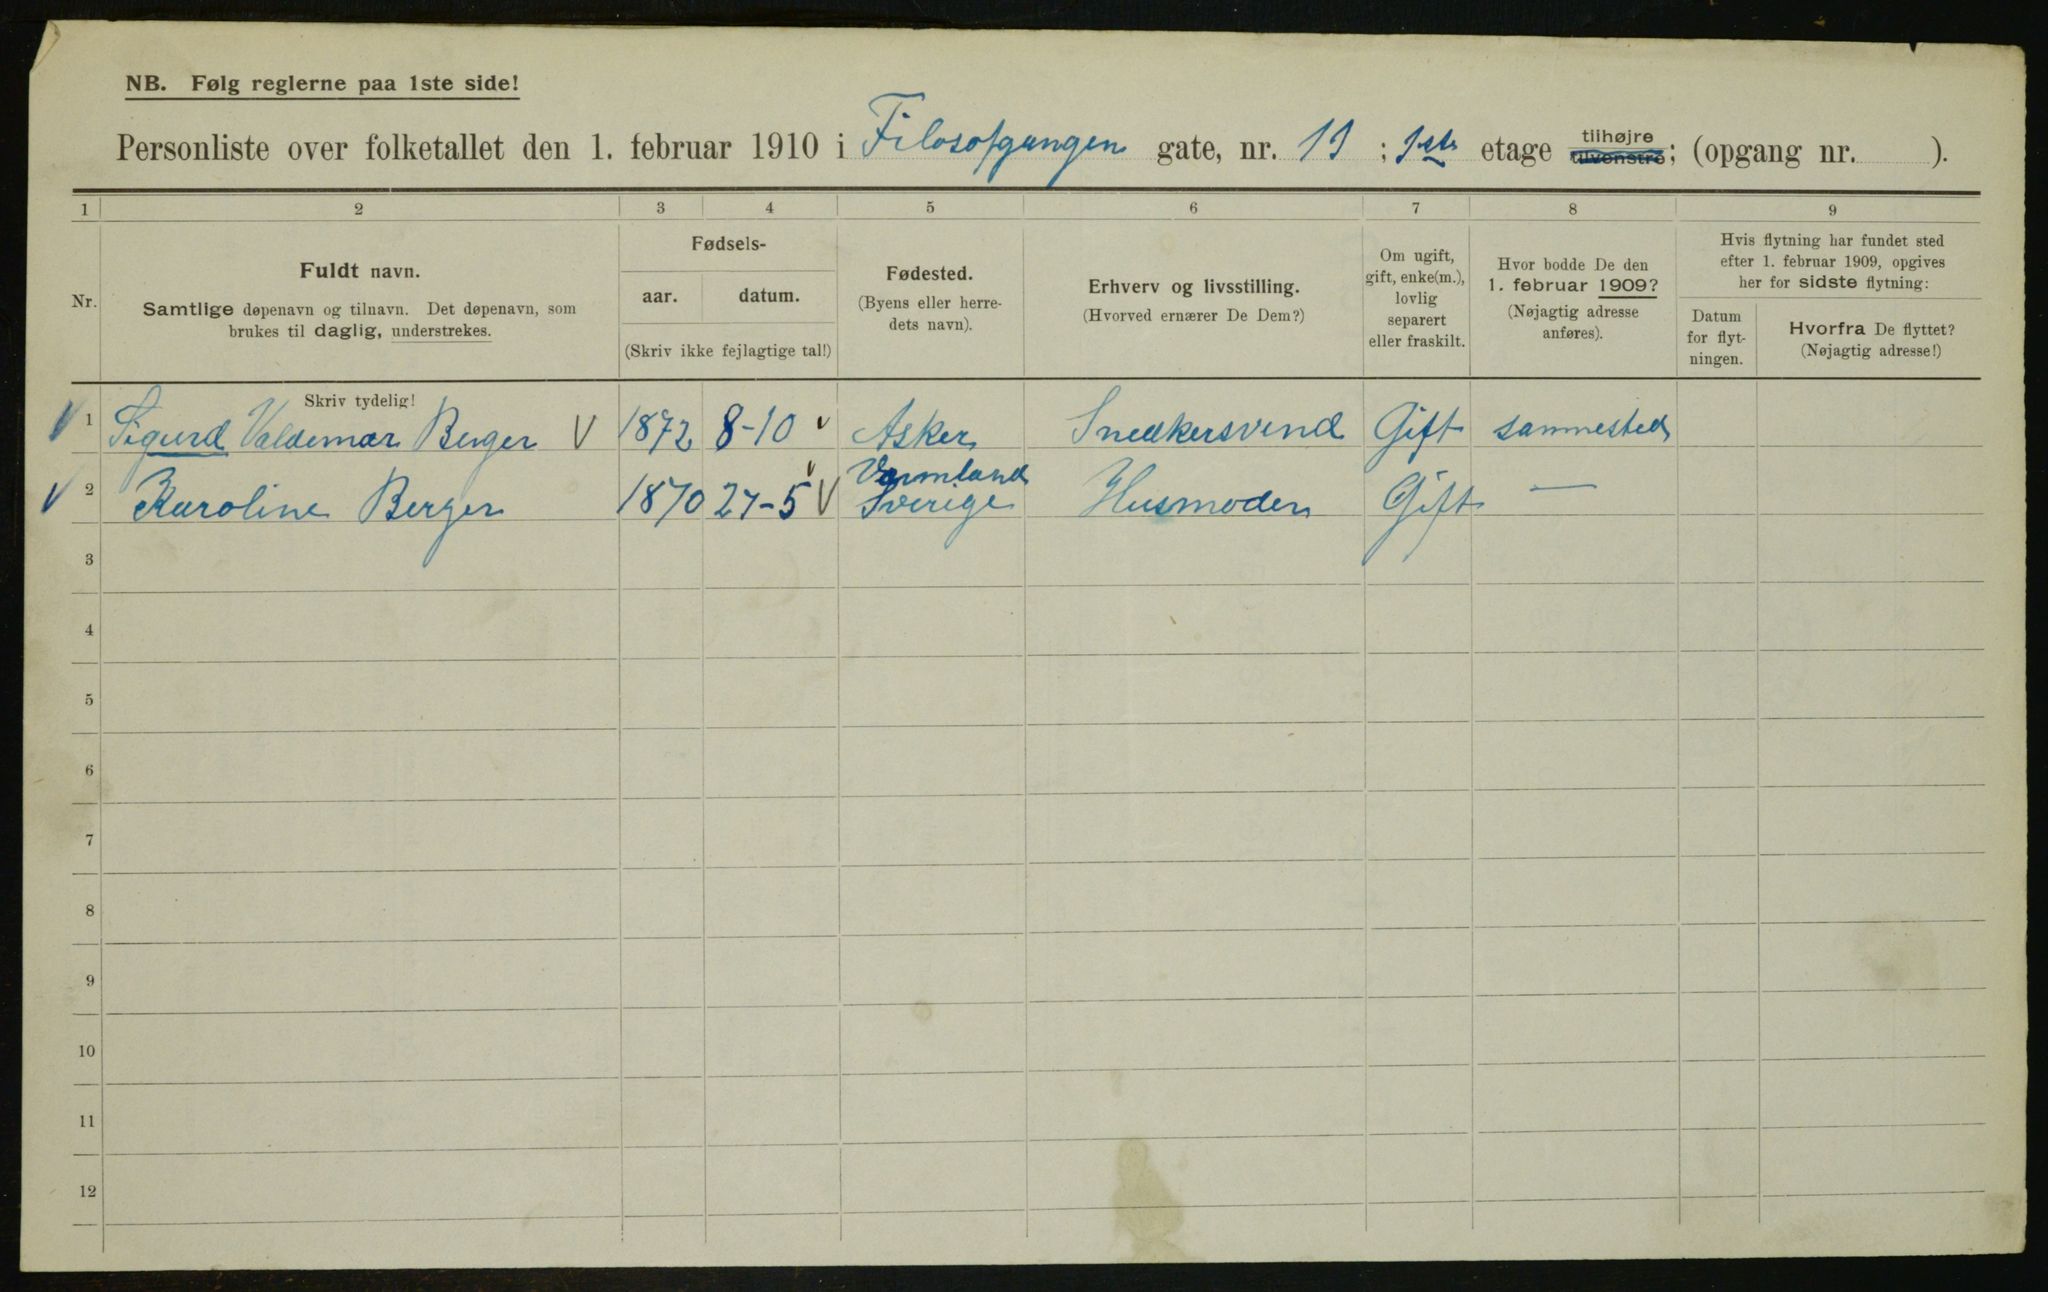 NB. Følg reglerne paa 1ste side!
Personliste over folketallet den 1. februar 1910 i Filosofgangen gate, nr. 11 ; 1ste etage tilhøjre tilvenstre; (opgang nr. ).
1 2 3 4 5 6 7 8 9
Nr.
Fuldt navn.
Samtlige døpenavn og tilnavn. Det døpenavn, som
brukes til daglig, understrekes.
Fødsels-
aar. datum.
(Skriv ikke fejlagtige tal!)
Fødested.
(Byens eller herre-
dets navn).
Erhverv og livsstilling.
(Hvorved ernærer De Dem?)
Om ugift,
gift, enke(m.),
lovlig
separert
eller fraskilt.
Hvor bodde De den
1. februar 1909?
(Nøjagtig adresse
anføres).
Hvis flytning har fundet sted
efter 1. februar 1909, opgives
her for sidste flytning:
Datum
for flyt-
ningen.
Hvorfra De flyttet?
(Nøjagtig adresse!)
Skriv tydelig!
V 1 Sigurd Valdemar Berger V 1872 8-10 v Asker Snedkersvend Gift sammested
V 2 Karoline Berger 1870 27-5 V Vermland Sverige Husmoder Gift —
3
4
5
6
7
8
9
10
11
12